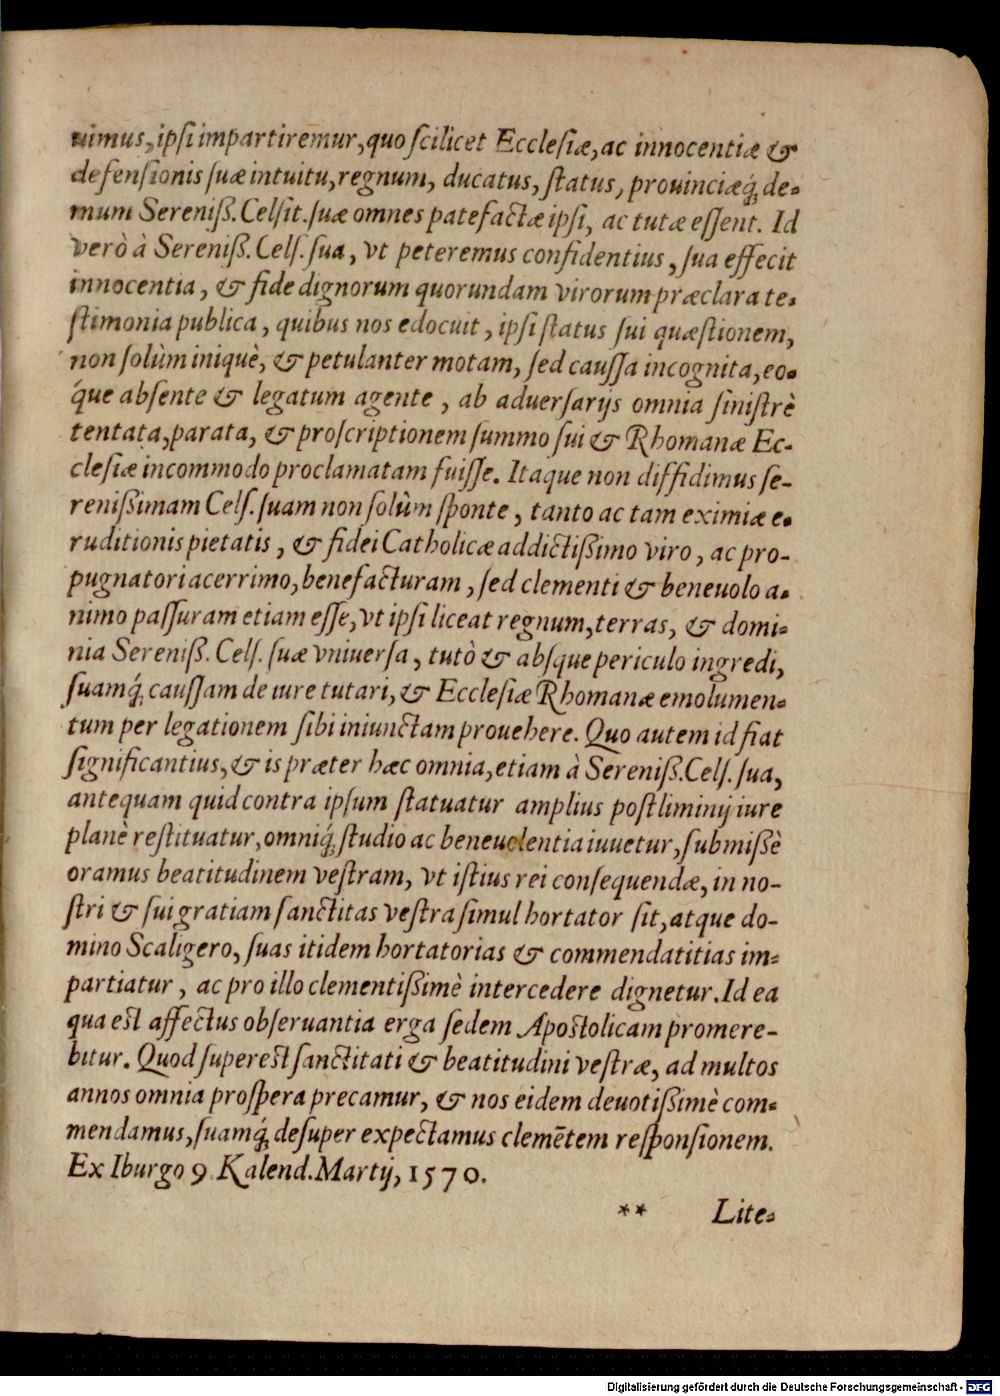 uimus, ipsi impartiremur, quo scilicet Ecclesiæ, ac innocentiæ &
defensionis suæ intuitu, regnum, ducatus, status, prouinciæq́; de-
mum Sereniß. Celsit. suæ omnes patefactæ ipsi, ac tutæ essent. Id
verò à Sereniß. Cels. sua, vt peteremus confidentius, sua effecit
innocentia, & fide dignorum quorundam virorum præclara te-
stimonia publica, quibus nos edocuit, ipsi status sui quæstionem,
non solùm iniquè, & petulanter motam, sed caussa incognita, eo-
q́ue absente & legatum agente, ab aduersarijs omnia sinistrè
tentata, parata, & proscriptionem summo sui & Rhomanæ Ec-
clesiæ incommodo proclamatam fuisse. Itaque non diffidimus se-
renißimam Cels. suam non solùm sponte, tanto ac tam eximiæ e-
ruditionis pietatis, & fidei Catholicæ addictißimo viro, ac pro-
pugnatori acerrimo, benefacturam, sed clementi & beneuolo a-
nimo passuram etiam esse, vt ipsi liceat regnum, terras, & domi-
nia Sereniß. Cels. suæ vniuersa, tutò & absque periculo ingredi,
suamq́; caussam de iure tutari, & Ecclesiæ Rhomanæ emolumen-
tum per legationem sibi iniunctam prouehere. Quo autem id fiat
significantius, & is præter hæc omnia, etiam à Sereniß. Cels. sua,
antequam quid contra ipsum statuatur amplius postliminij iure
planè restituatur, omniq́; studio ac beneuolentia iuuetur, submißè
oramus beatitudinem vestram, vt istius rei consequendæ, in no-
stri & sui gratiam sanctitas vestra simul hortator sit, atque do-
mino Scaligero, suas itidem hortatorias & commendatitias im-
partiatur, ac pro illo clementißimè intercedere dignetur. Id ea
qua est affectus obseruantia erga sedem Apostolicam promere-
bitur. Quod superest sanctitati & beatitudini vestræ, ad multos
annos omnia prospera precamur, & nos eidem deuotißimè com-
mendamus, suamq́; desuper expectamus clemētem responsionem.
Ex Iburgo 9. Kalend. Martij, 1570.
** Lite-
Digitalisierung gefördert durch die Deutsche Forschungsgemeinschaft - DFG